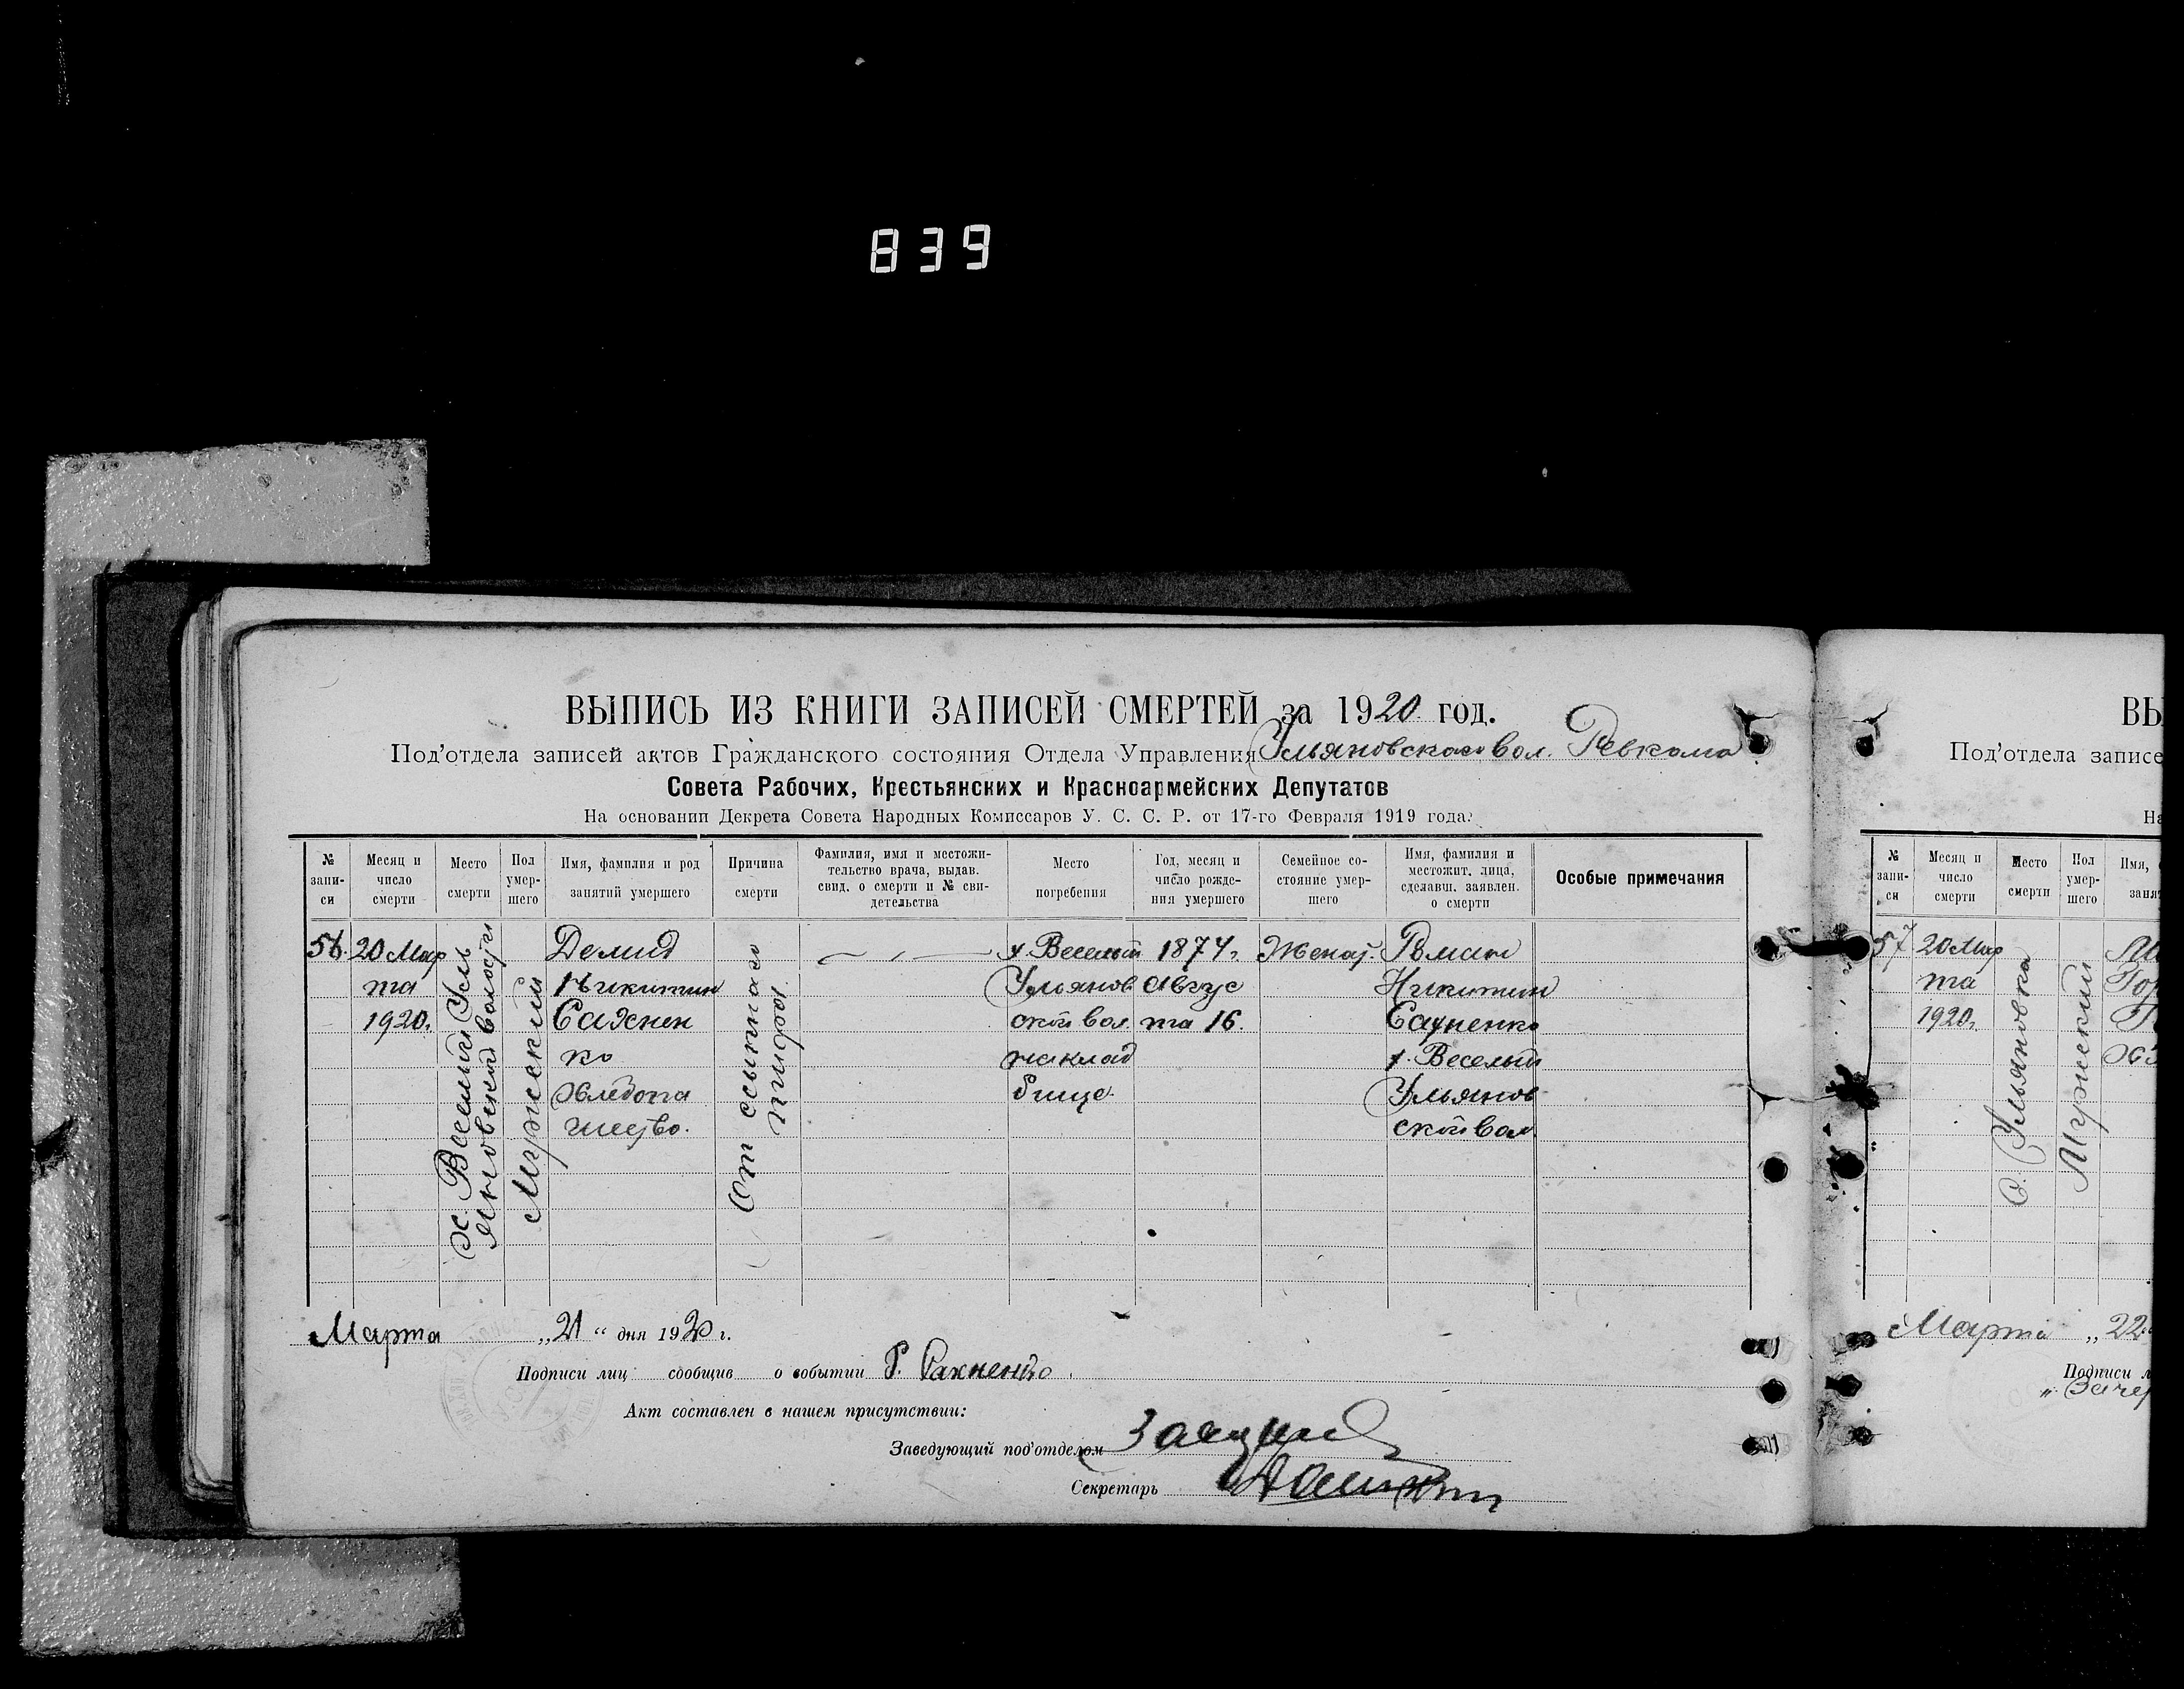 839
ВЫПИСЬ ИЗ КНИГИ ЗАПИСЕЙ СМЕРТЕЙ за 1920 год.
Под'отдела записей актов Гражданского состояния Отдела Управления Ульяновскаго вол. Ревкома
Совета Рабочих, Крестьянских и Красноармейских Депутатов
На основании Декрета Совета Народных Комиссаров У. С. С. Р. от 17-го Февраля 1919 года.
№ запи-
си
Месяц и
число
смерти
Место
смерти
Пол
умер-
шего
Имя, фамилия и род
занятий умершего
Причина
смерти
Фамилия, имя и местожи-
тельство врача, выдав.
свид. о смерти и № сви-
детельства
Место
погребения
Год, месяц и
число рожде-
ния умершего
Семейное со-
стояние умер-
шего
Имя, фамилия и
местожит. лица,
сделавш. заявлен.
о смерти
Особые примечания
56.
20 Мар
та
1920.
х. Веселый Уль
яновской волости
Мужеский
Демид
Никитин
Сахнен
ко
Хлебопа
шество.
От сыпнаго
тифа
х. Веселый
Ульянов
ской вол.
на клад
бище.
1874 г.
Авгус
та 16.
Женат.
Роман
Никитин
Сахненко
х. Веселый
Ульянов
ской вол.
Марта „21“ дня 1920 г.
Подписи лиц сообщив о событии Р. Сахненко
Акт составлен в нашем присутствии:
Заведующий под'отделом
Секретарь
ВЫ
Под'отдела записе
На
№
запи-
си
Месяц и
число
смерти
Место
смерти
Пол
умер-
шего
Имя,
заня
57
20 Мар
та
1920 г.
с. Ульяновка
Мужеский
Марта „22
Подписи л